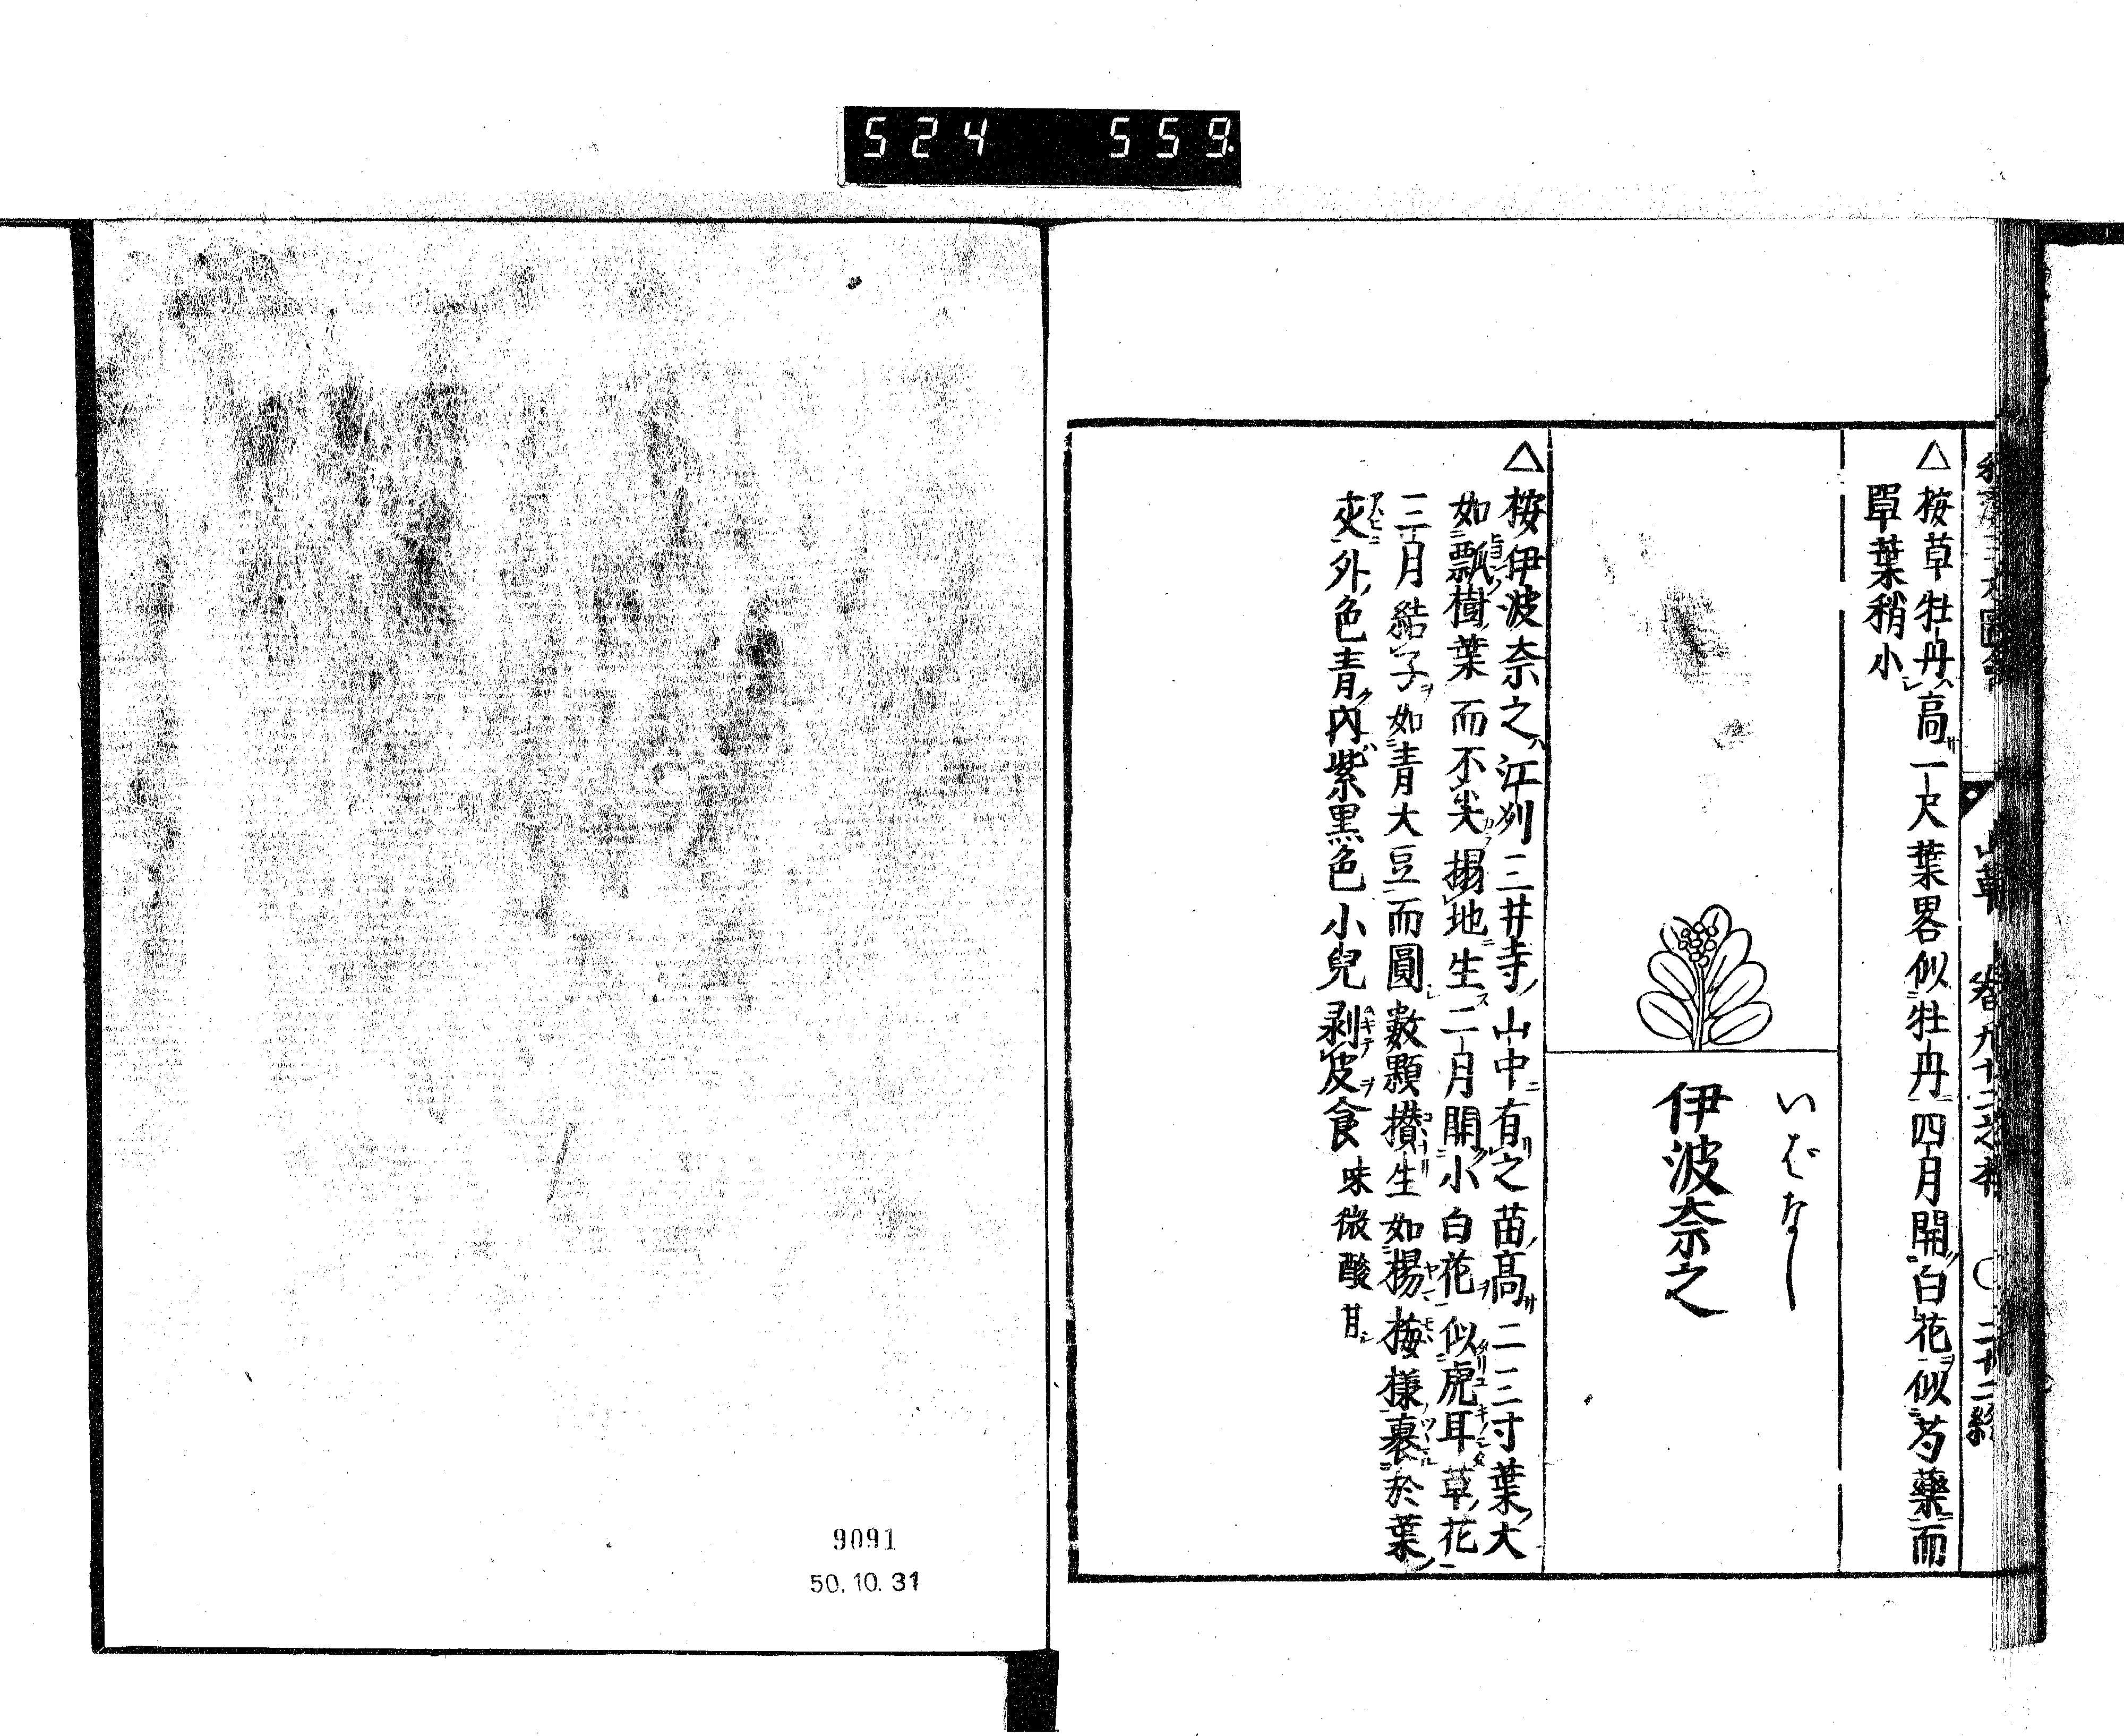 524 559
山草 卷九十二之本 〇二十二終
△按草牡丹ハ高サ一尺葉畧似牡丹四月開白花似芍藥而
單葉稍小シ
いばなし
伊波奈之
△按伊波奈之ハ江州三井寺ノ山中ニ有之苗ノ高サ二三寸葉大
如瓢樹葉而不尖搨地生ス二月開小白花似虎耳草花
三月結子ヲ如青大豆而圓數顆攅生如楊梅様裹於葉
夾外色青ク内紫黒色小兒剥皮食味微酸甘シ
9091
50.10.31